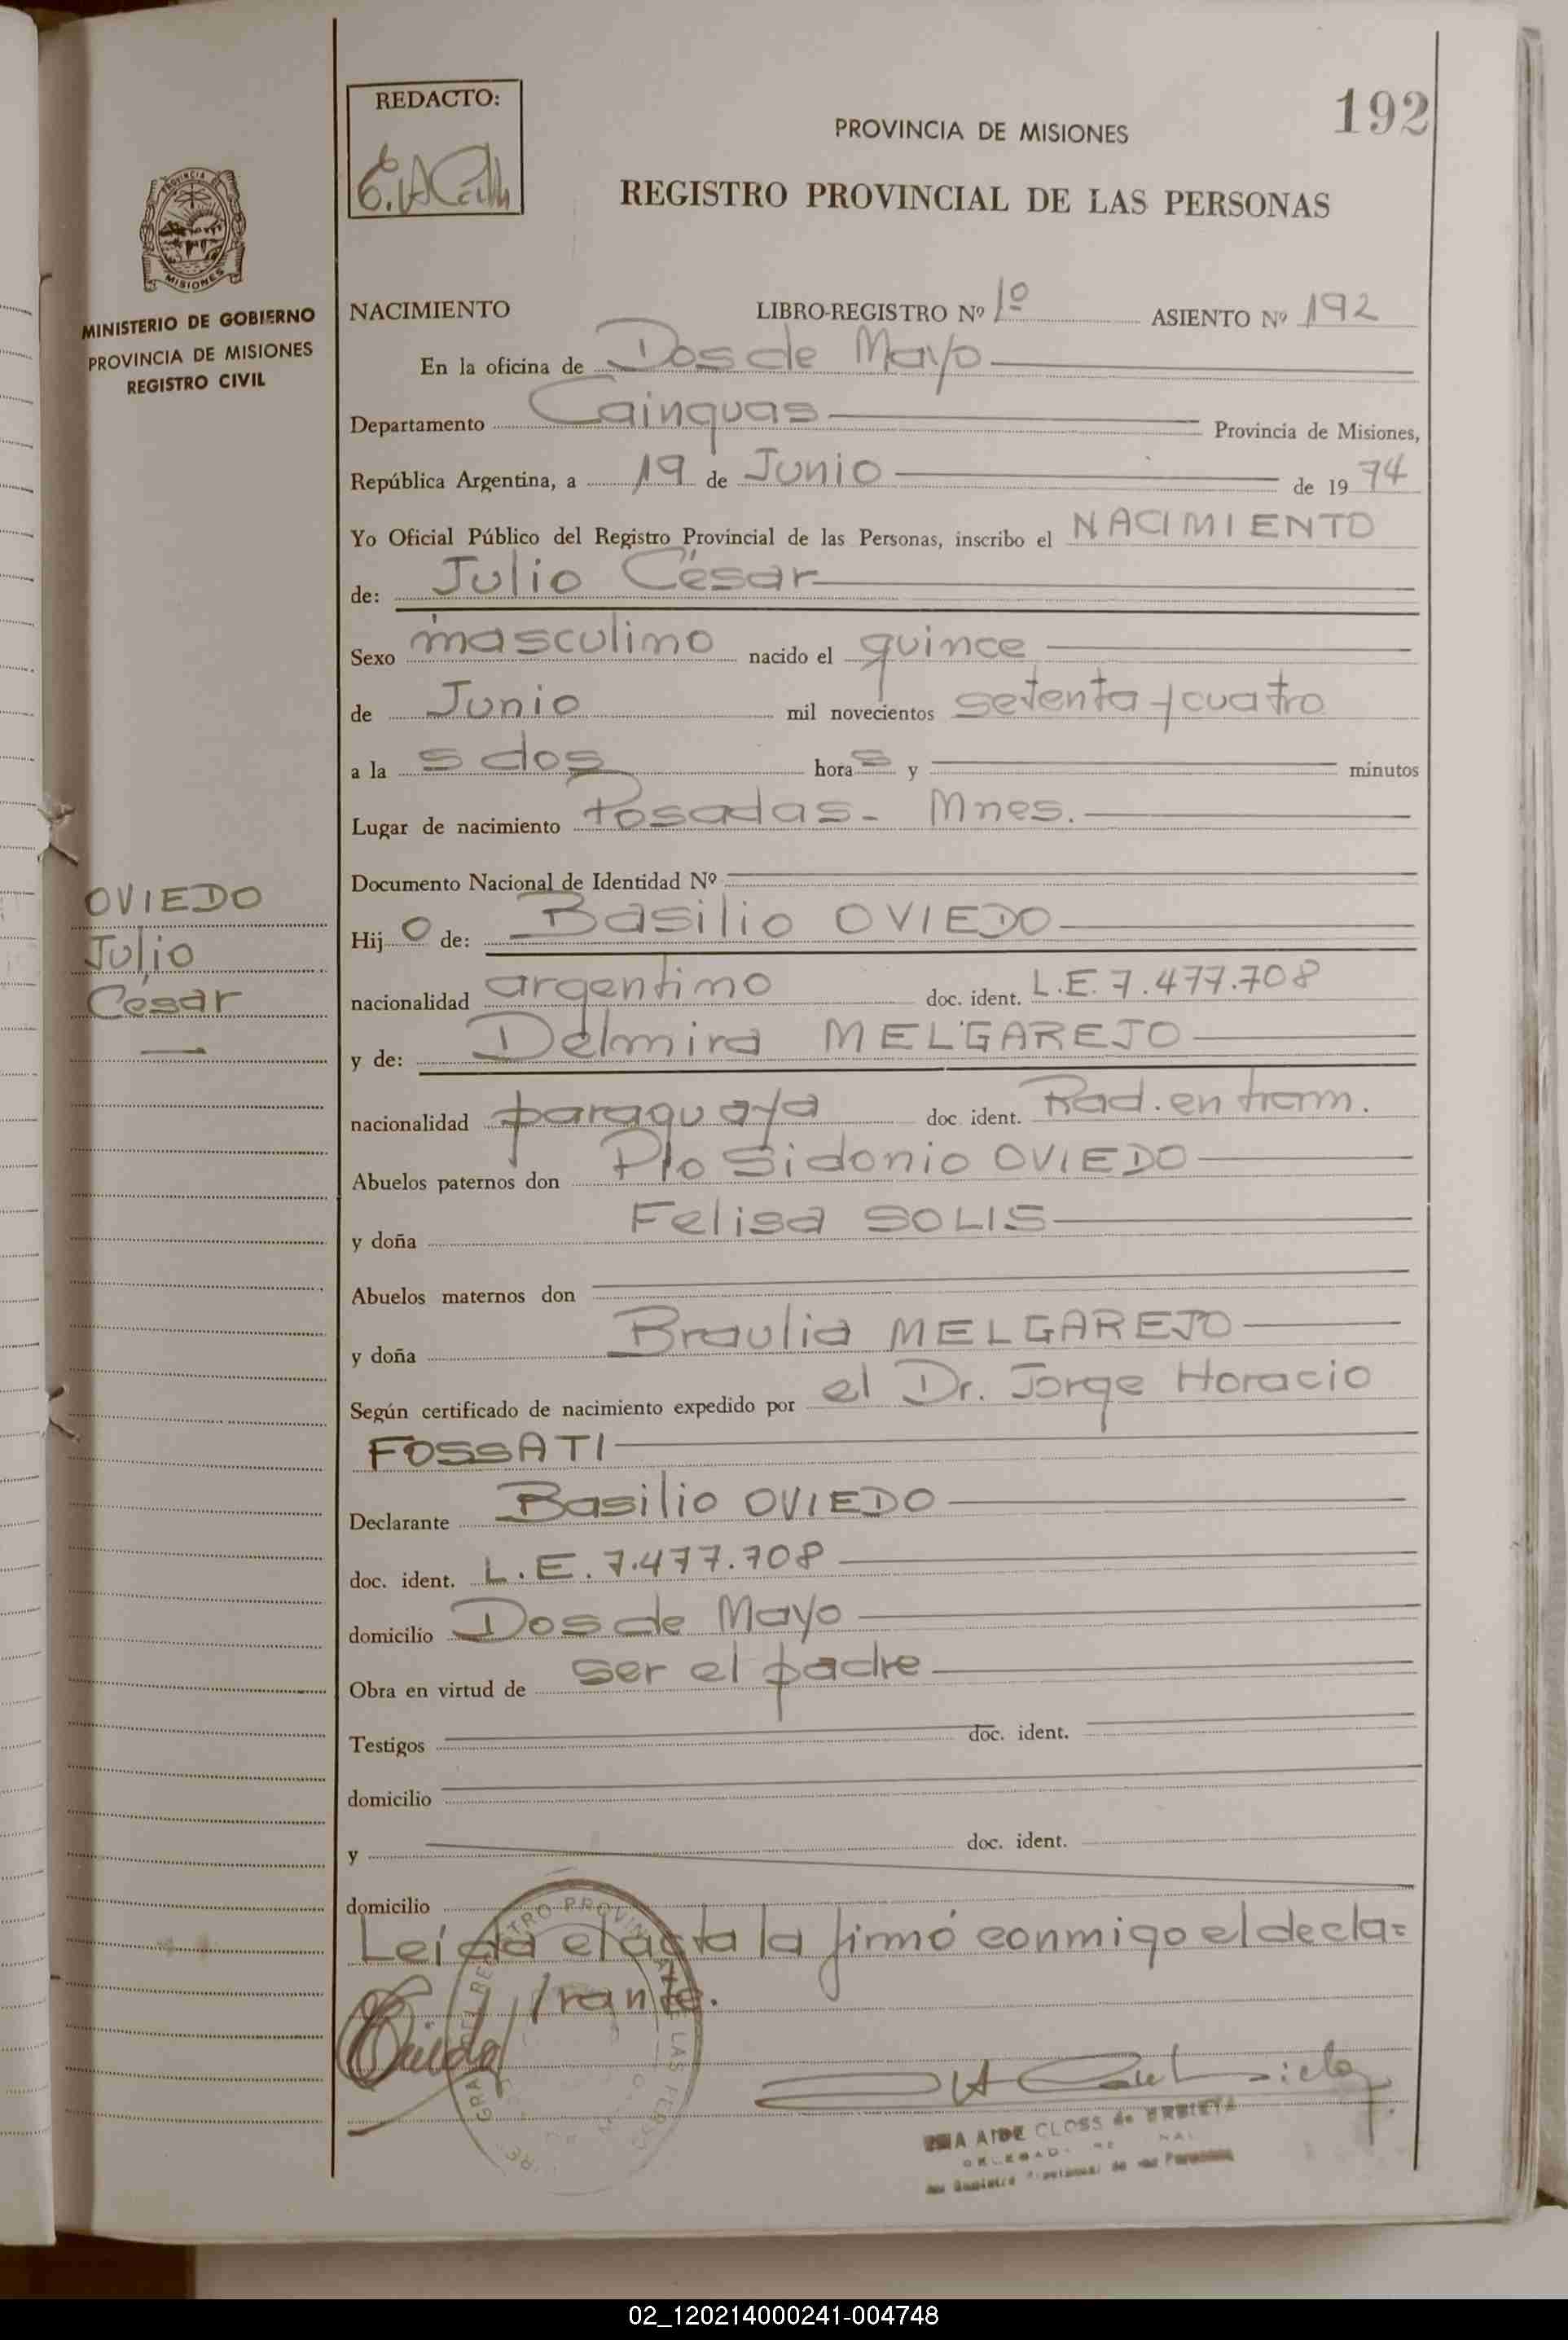 REDACTO:
192
PROVINCIA DE MISIONES
REGISTRO PROVINCIAL DE LAS PERSONAS
PROVINCIA
MISIONES
MINISTERIO DE GOBIERNO
PROVINCIA DE MISIONES
REGISTRO CIVIL
NACIMIENTO LIBRO-REGISTRO Nº 1º ASIENTO Nº 192
En la oficina de Dos de Mayo
Departamento Cainguas Provincia de Misiones,
República Argentina, a 19 de Junio de 1974
Yo Oficial Público del Registro Provincial de las Personas, inscribo el NACIMIENTO
de: Julio César
Sexo masculino nacido el quince
de Junio mil novecientos setenta y cuatro
a las dos horas y minutos
Lugar de nacimiento Posadas - Mnes.
Documento Nacional de Identidad Nº
OVIEDO
Julio
César
Hijo de: Basilio OVIEDO
nacionalidad argentino doc. ident. L.E. 7.477.708
y de: Delmira MELGAREJO
nacionalidad paraguaya doc. ident. Rad. en tram.
Abuelos paternos don Pío Sidonio OVIEDO
y doña Felisa SOLIS
Abuelos maternos don
y doña Braulia MELGAREJO
Según certificado de nacimiento expedido por el Dr. Jorge Horacio
FOSSATI
Declarante Basilio OVIEDO
doc. ident. L.E. 7.477.708
domicilio Dos de Mayo
Obra en virtud de ser el padre
Testigos doc. ident.
domicilio
y doc. ident.
domicilio
Leída el acta la firmó conmigo el decla=
rante.
Oviedo
AIDE CLOSS de URBIETA
02_120214000241-004748